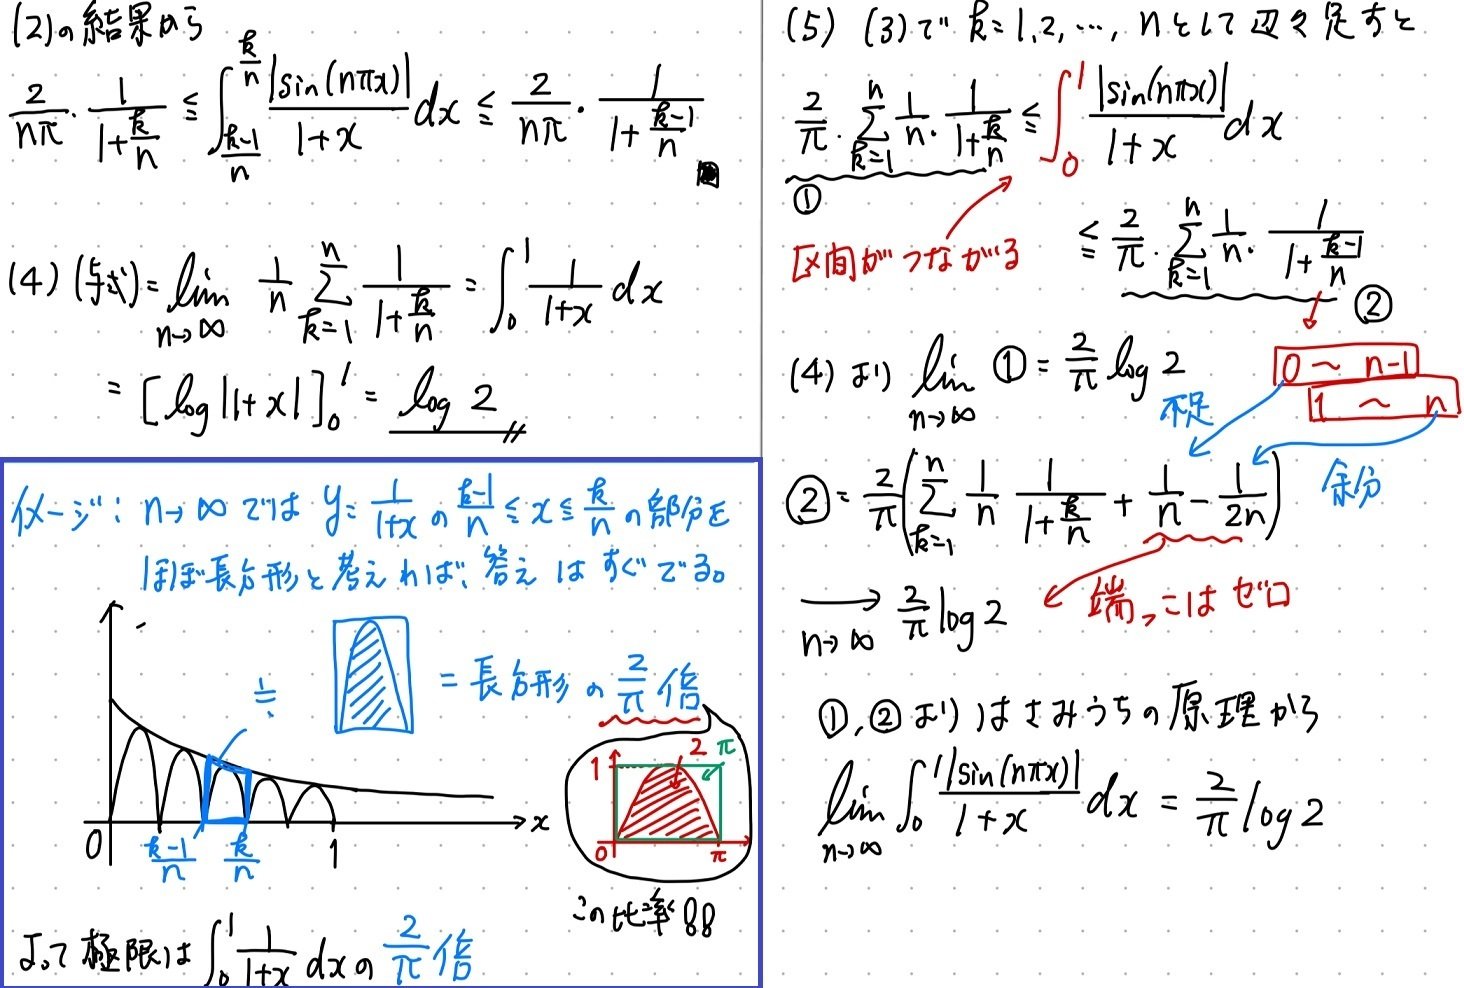 (2)の結果から
2/(nπ)・1/(1+k/n) ≦ ∫_{(k-1)/n}^{k/n} |sin(nπx)|/(1+x) dx ≦ 2/(nπ)・1/(1+(k-1)/n)
(4) (与式) = lim_{n→∞} 1/n Σ_{k=1}^{n} 1/(1+k/n) = ∫_0^1 1/(1+x) dx
= [log|1+x|]_0^1 = log 2
イメージ: n→∞では y=1/(1+x) の (k-1)/n ≦ x ≦ k/n の部分を
ほぼ長方形と考えれば、答えはすぐでる。
≒
= 長方形の 2/π 倍
2 π
1
0 π
0 (k-1)/n k/n 1 x
この比率!!
よって極限は ∫_0^1 1/(1+x) dx の 2/π 倍
(5) (3)で k=1,2,…,nとして辺々足すと
2/π・Σ_{k=1}^{n} 1/n・1/(1+k/n) ≦ ∫_0^1 |sin(nπx)|/(1+x) dx
①
区間がつながる
≦ 2/π・Σ_{k=1}^{n} 1/n・1/(1+(k-1)/n)
②
(4)より lim_{n→∞} ① = 2/π log 2
0 ~ n-1
1 ~ n
不足
余分
② = 2/π(Σ_{k=1}^{n} 1/n 1/(1+k/n) + 1/n - 1/(2n))
→_{n→∞} 2/π log 2
端っこはゼロ
①,②よりはさみうちの原理から
lim_{n→∞} ∫_0^1 |sin(nπx)|/(1+x) dx = 2/π log 2